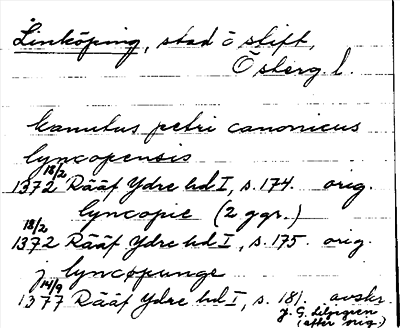 Linköping, stad o stift,
Östergl.
kanutus petri canonicus
lyncopensis
18/2
1372 Rääf Ydre hd I, s. 174. orig.
lyncopie (2 ggr.)
18/2
1372 Rääf Ydre hd I, s. 175. orig.
j lyncøpunge
14/9
1377 Rääf Ydre hd I, s. 181. avskr.
J. G. Liljegren
(efter orig.)